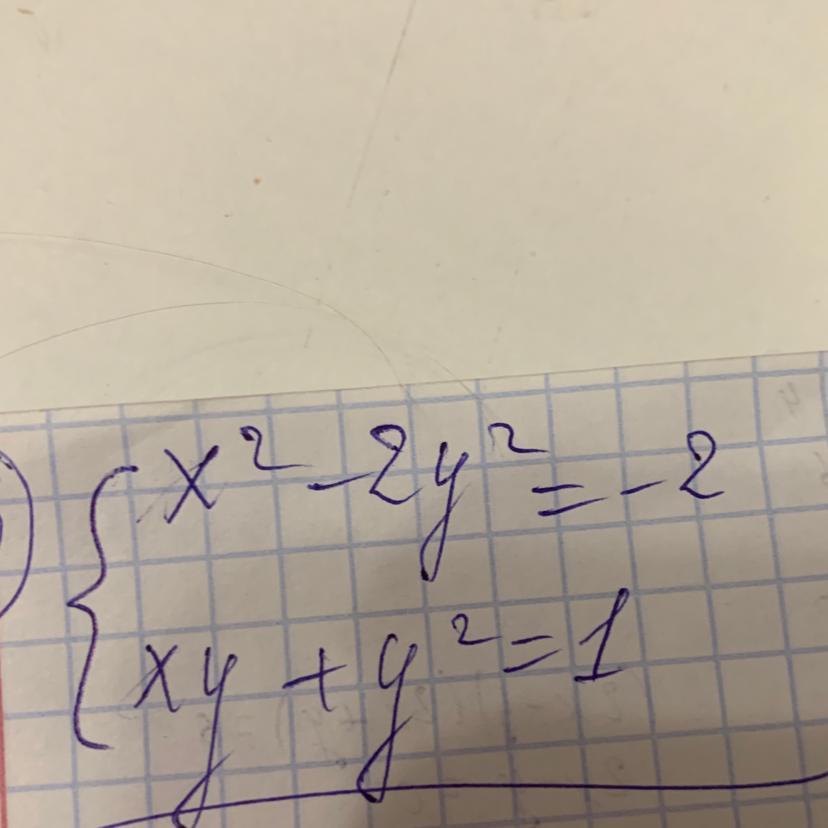 x² - 2y² = -2
xy + y² = 1